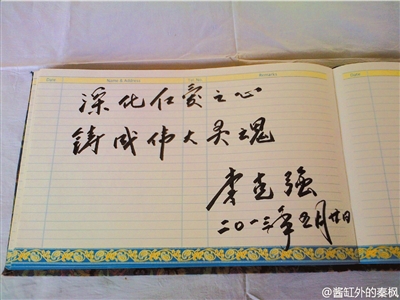 Date Name & Address Tel. No. Remarks Date
深化仁爱之心
铸成伟大灵魂
李克强
二〇一三年五月廿日
@酱缸外的秦枫